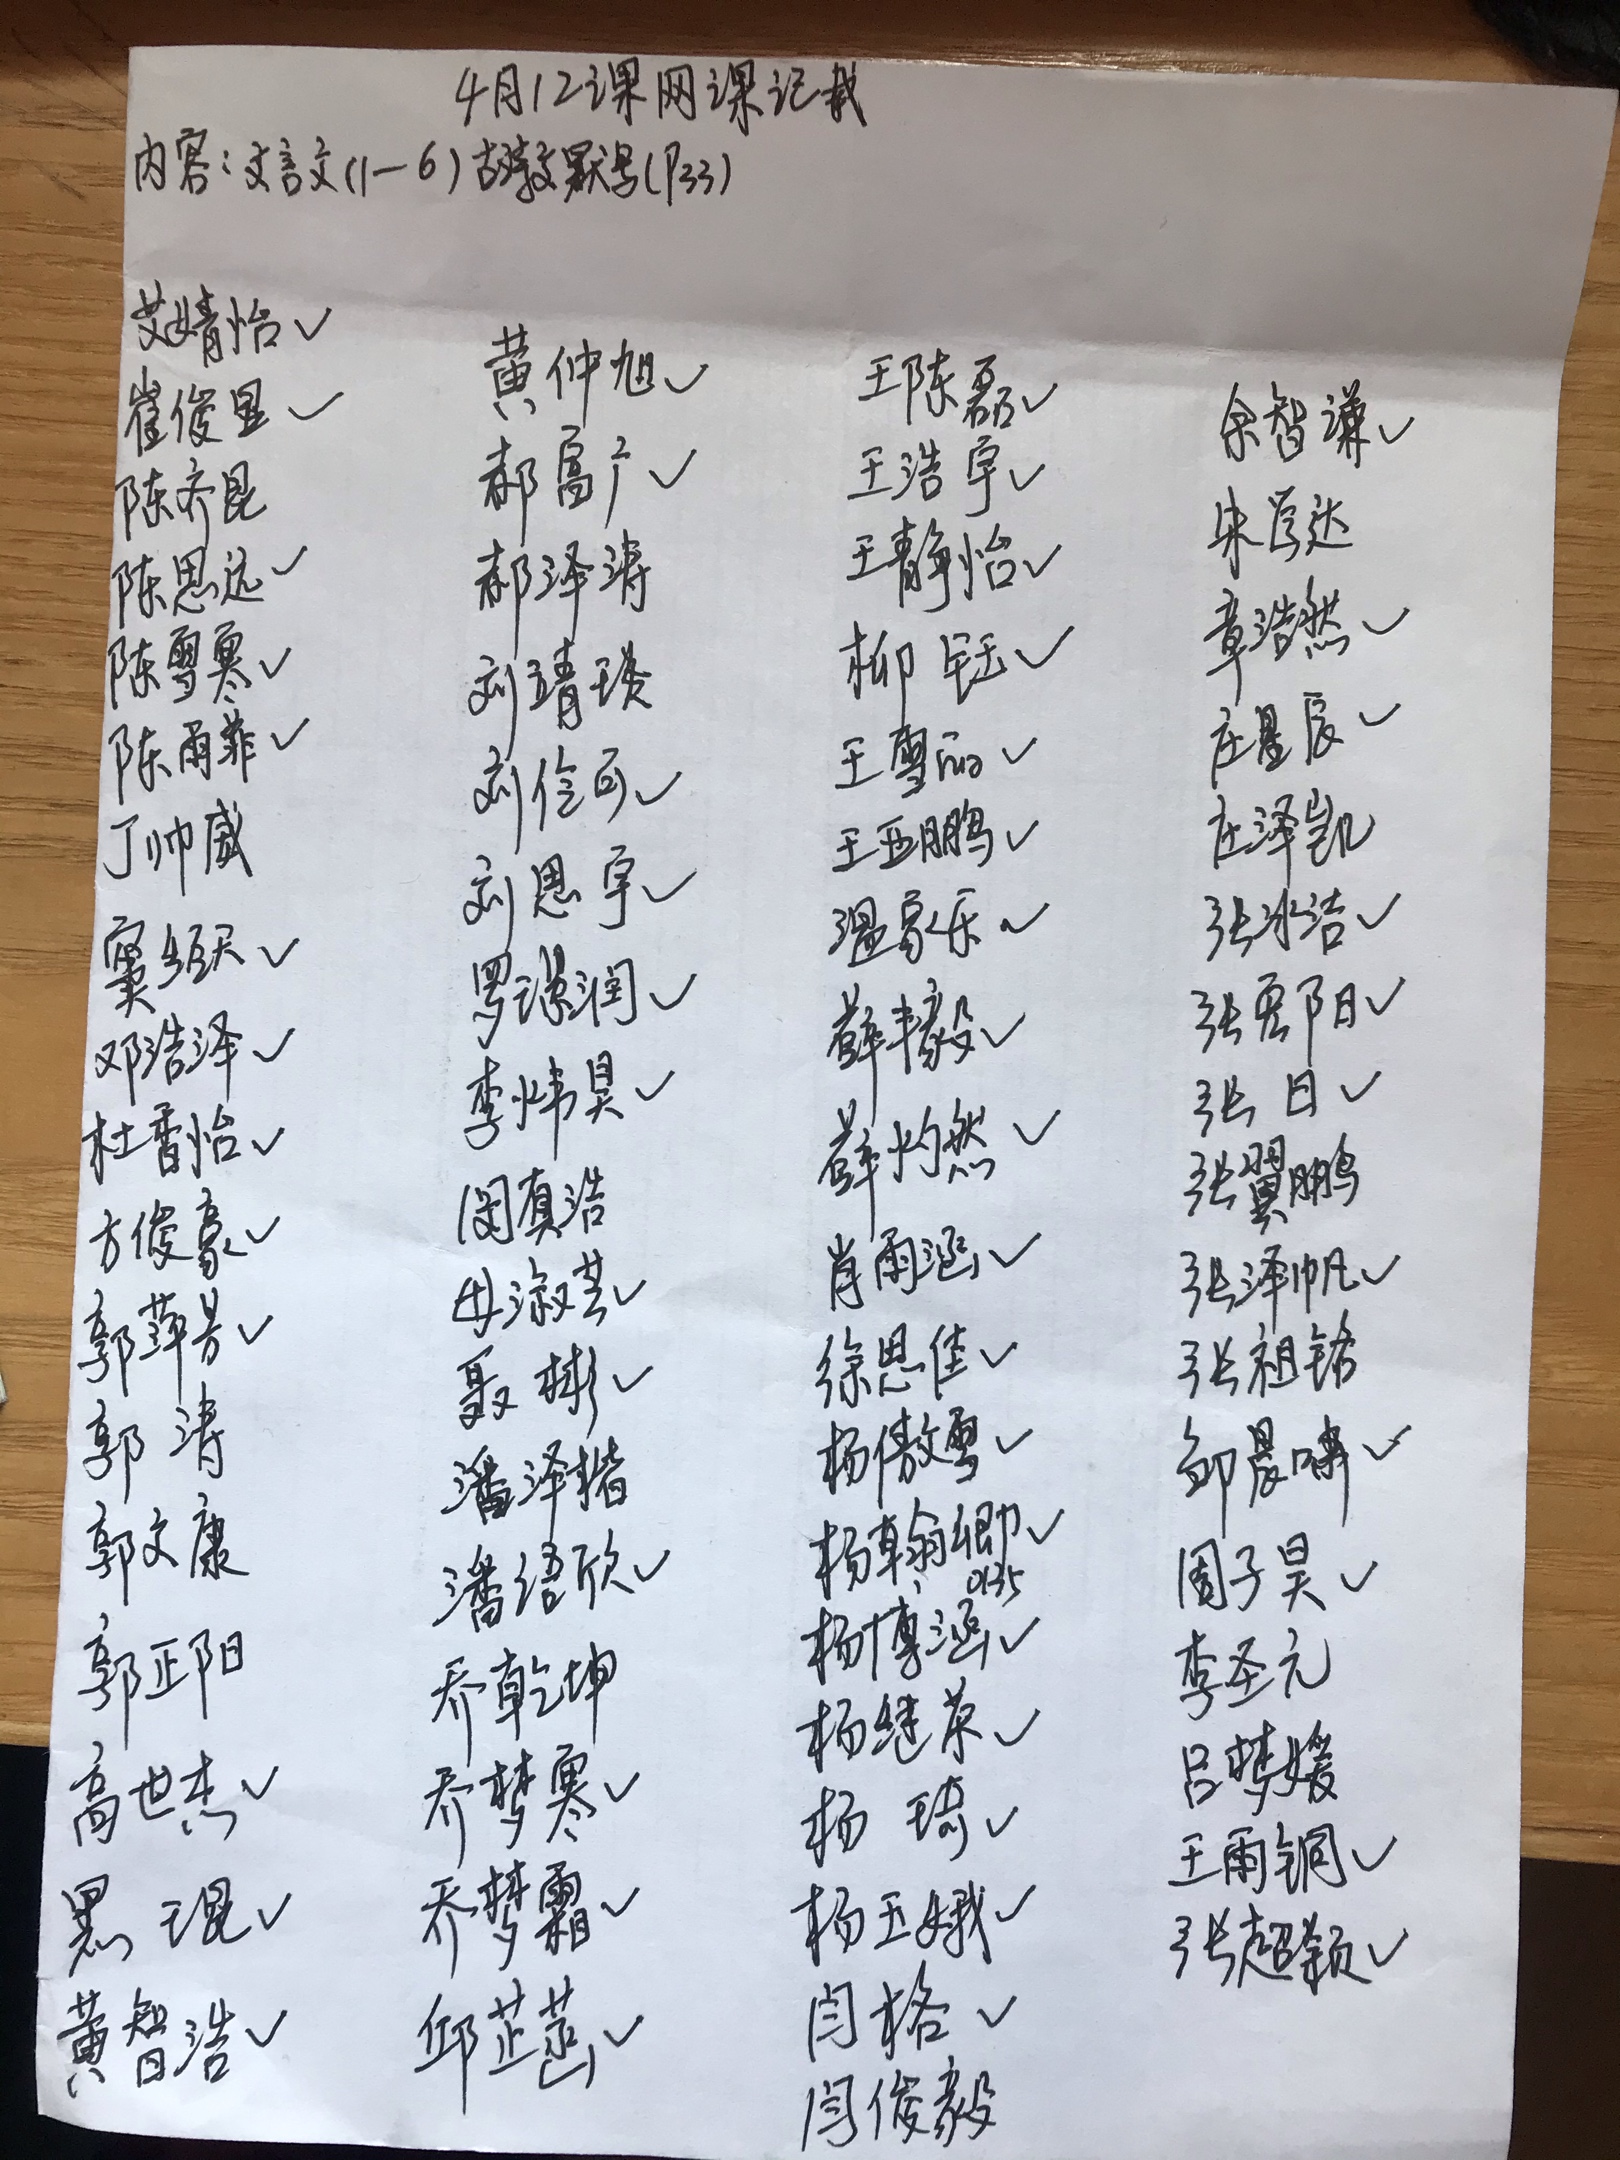 4月12课网课记载
内容:文言文(1—6)古诗文默写(P33)
艾婧怡✓
崔俊显✓
陈齐昆
陈思远✓
陈雪寒✓
陈雨菲✓
丁帅威
窦绍天✓
邓浩泽✓
杜香怡✓
方俊豪✓
郭萍芳✓
郭涛
郭文康
郭正阳
高世杰✓
黑琨✓
黄智浩✓
黄仲旭✓
郝富广✓
郝泽涛
刘靖瑛
刘佺可✓
刘思宇✓
罗谋润✓
李炜昊✓
闵真浩
毋淑芸✓
聂彬✓
潘泽楷
潘语欣✓
乔乾坤
乔梦寒✓
乔梦霜✓
邱芷菡✓
王陈磊✓
王浩宇✓
王静怡✓
柳钰✓
王雪丽✓
王亚鹏✓
温家乐✓
薛丰毅✓
薛灼然✓
肖雨涵✓
徐思佳✓
杨傲雪✓
杨翰卿✓
0135
杨博涵✓
杨继荣✓
杨琦✓
杨玉娥✓
闫格✓
闫俊毅
余智谦✓
朱学达
章浩然✓
庄星辰✓
庄泽凯
张冰洁✓
张夏阳✓
张日✓
张翼鹏
张泽帆✓
张祖铭
邹晨啸✓
周子昊✓
李圣元
吕梦媛
王雨铜✓
张超颖✓